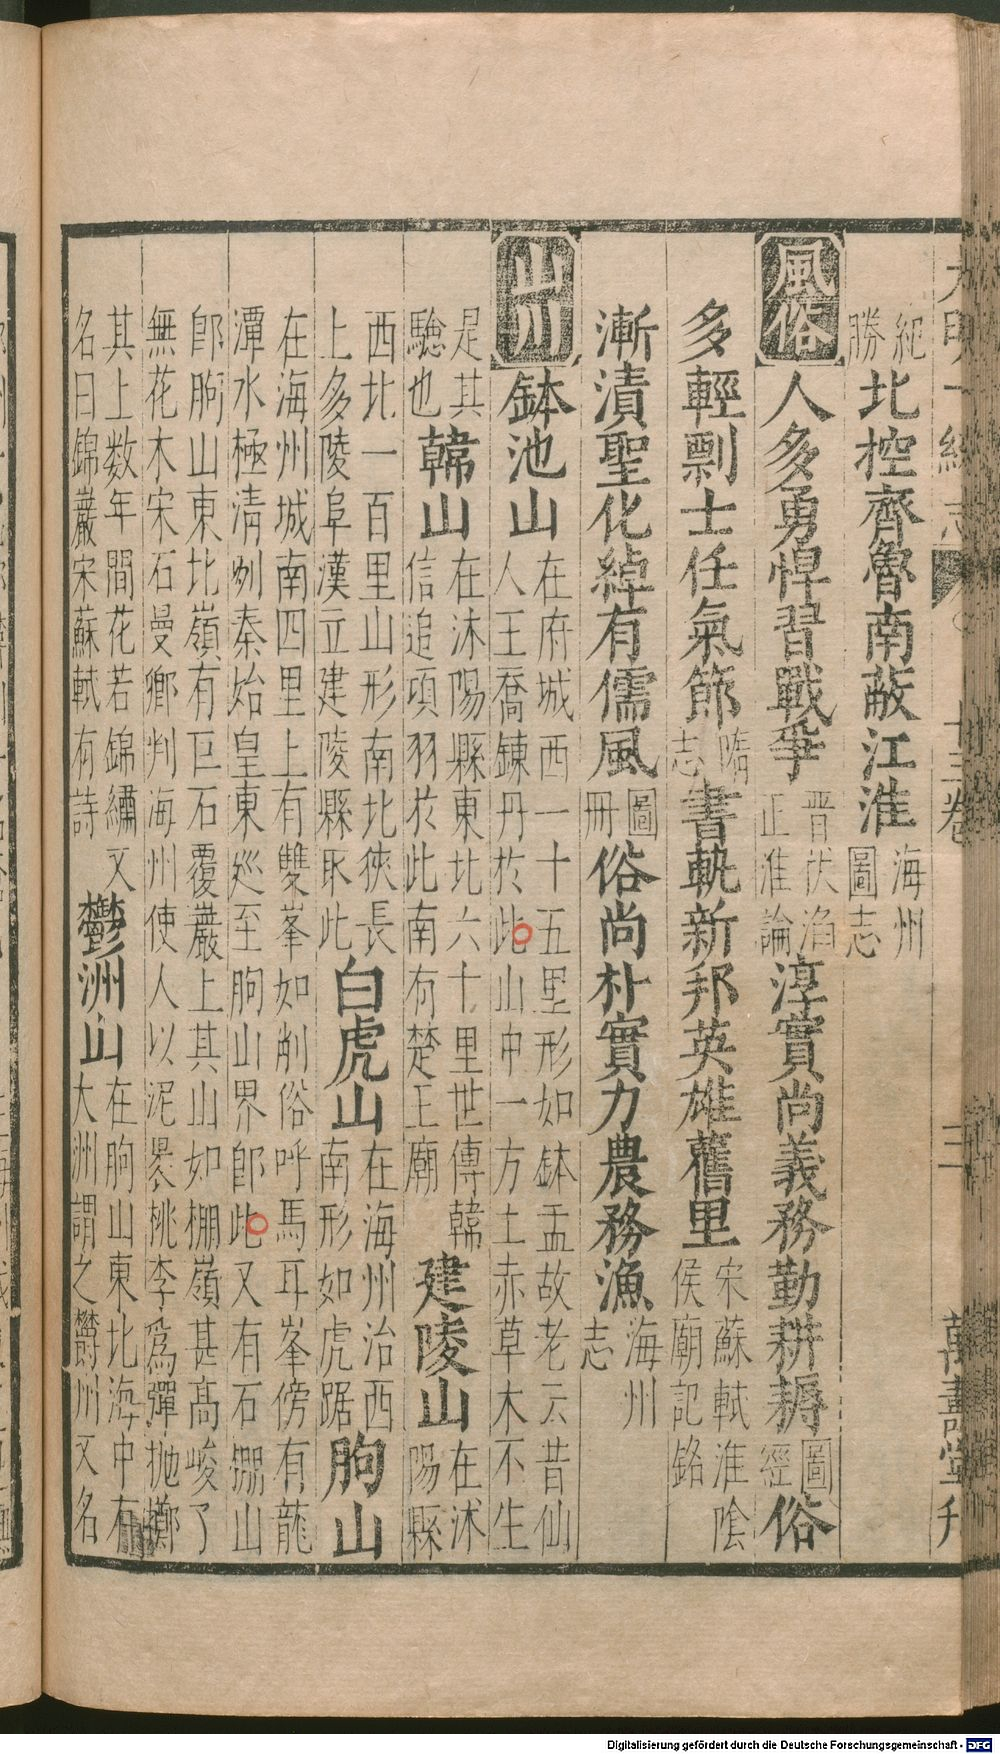 大明一統志 十三卷 三 萬壽堂刋
紀勝 北控齊魯南蔽江淮 海州圖志
風俗 人多勇悍習戰爭 晋伏滔正淮論 淳實尚義務勤耕耨 圖經 俗
多輕剽士任氣節 隋志 書軌新邦英雄舊里 宋蘇軾淮陰侯廟記銘
漸漬聖化綽有儒風 圖冊 俗尚朴實力農務漁 海州志
山川 鉢池山 在府城西一十五里形如鉢盂故老云昔仙
人王喬鍊丹於此山中一方土赤草木不生
是其
驗也 韓山 在沐陽縣東北六十里世傳韓
信追項羽於此南有楚王廟 建陵山 在沭
陽縣
西北一百里山形南北狹長
上多陵阜漢立建陵縣取此 白虎山 在海州治西
南形如虎踞 朐山
在海州城南四里上有雙峯如削俗呼馬耳峯傍有龍
潭水極清冽秦始皇東廵至朐山界卽此又有石棚山
卽朐山東北嶺有巨石覆巖上其山如棚嶺甚高峻了
無花木宋石曼卿判海州使人以泥裹桃李爲彈抛擲
其上数年間花若錦繡又
名曰錦巖宋蘇軾有詩 鬱洲山 在朐山東北海中有
大洲謂之鬱州又名
Digitalisierung gefördert durch die Deutsche Forschungsgemeinschaft - DFG